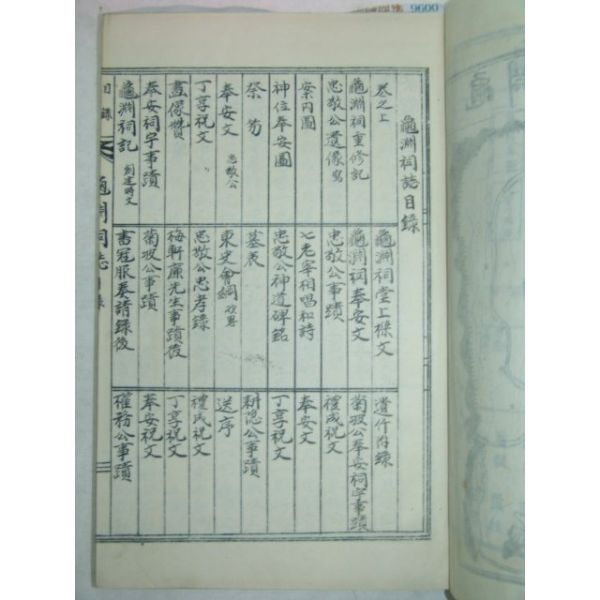 9600
龜淵祠誌目錄
卷之上
龜淵祠重修記
忠敬公遺像寫
案內圖
神位奉安圖
祭笏
奉安文 忠敬公
丁享祝文
畫像贊
奉安祠宇事蹟
龜淵祠記 創建時文
龜淵祠堂上樑文
龜淵祠奉安文
忠敬公事蹟
七老宰相唱和詩
忠敬公神道碑銘
墓表
東史會綱
忠敬公忠孝錄
梅軒廉先生事蹟後
菊坡公事蹟
書冠服奏請錄後
遺什附錄
菊坡公奉安祠宇事蹟
禮成祝文
奉安文
丁享祝文
耕隱公事蹟
送序
禮成祝文
丁享祝文
奉安祝文
權務公事蹟
目錄
龜淵祠誌目錄